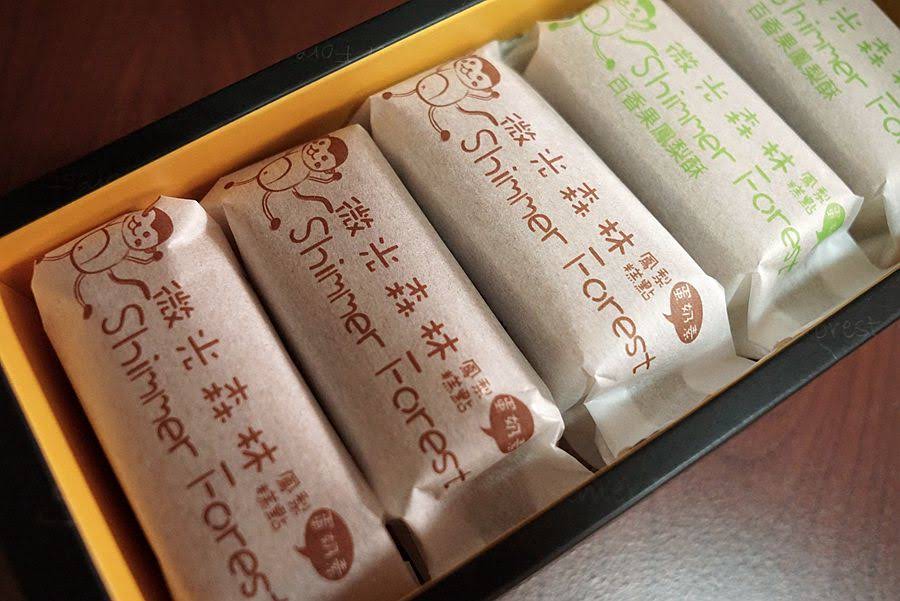 微光森林
Shimmer Forest
鳳梨
糕點
蛋奶素
微光森林
Shimmer Forest
鳳梨
糕點
蛋奶素
微光森林
Shimmer Forest
鳳梨
糕點
蛋奶素
微光森林
Shimmer Forest
百香果鳳梨酥
糕點
Shimmer Fo
百香果鳳梨酥